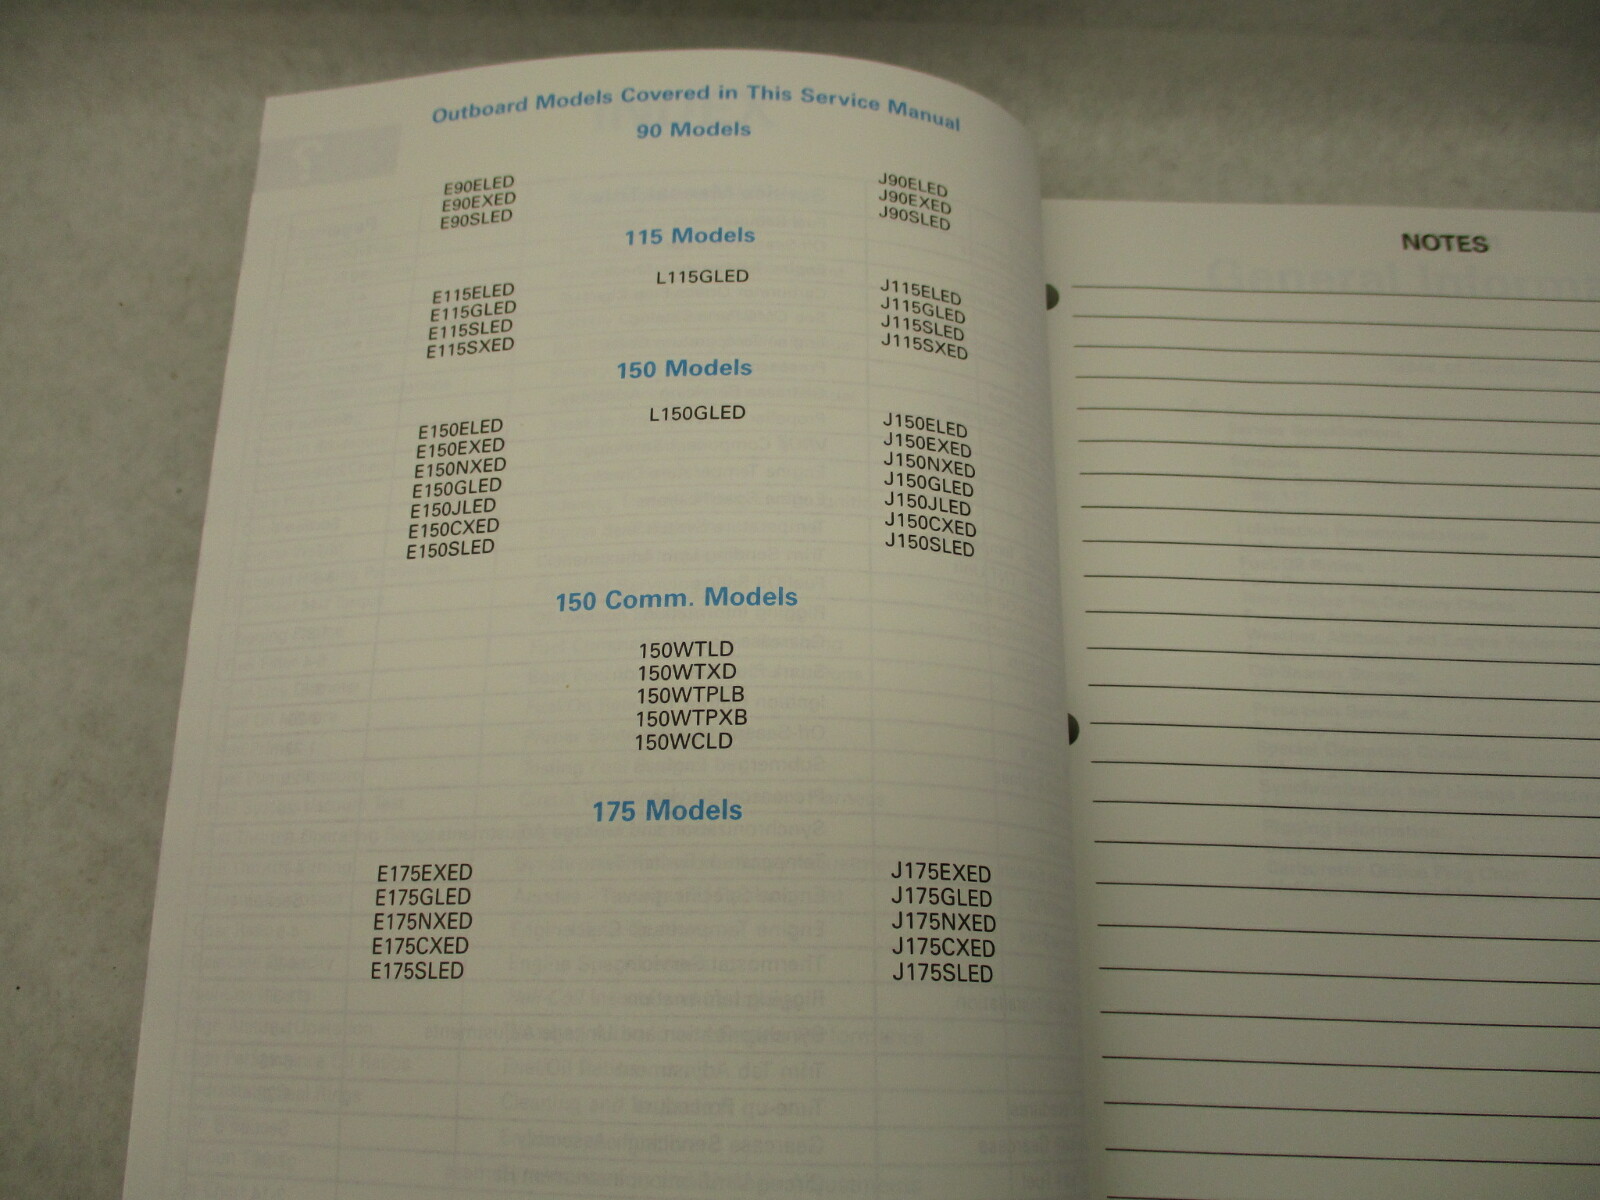 Outboard Models Covered in This Service Manual
90 Models
E90ELED
E90EXED
E90SLED
J90ELED
J90EXED
J90SLED
115 Models
L115GLED
E115ELED
E115GLED
E115SLED
E115SXED
J115ELED
J115GLED
J115SLED
J115SXED
150 Models
L150GLED
E150ELED
E150EXED
E150NXED
E150GLED
E150JLED
E150CXED
E150SLED
J150ELED
J150EXED
J150NXED
J150GLED
J150JLED
J150CXED
J150SLED
150 Comm. Models
150WTLD
150WTXD
150WTPLB
150WTPXB
150WCLD
175 Models
E175EXED
E175GLED
E175NXED
E175CXED
E175SLED
J175EXED
J175GLED
J175NXED
J175CXED
J175SLED
NOTES